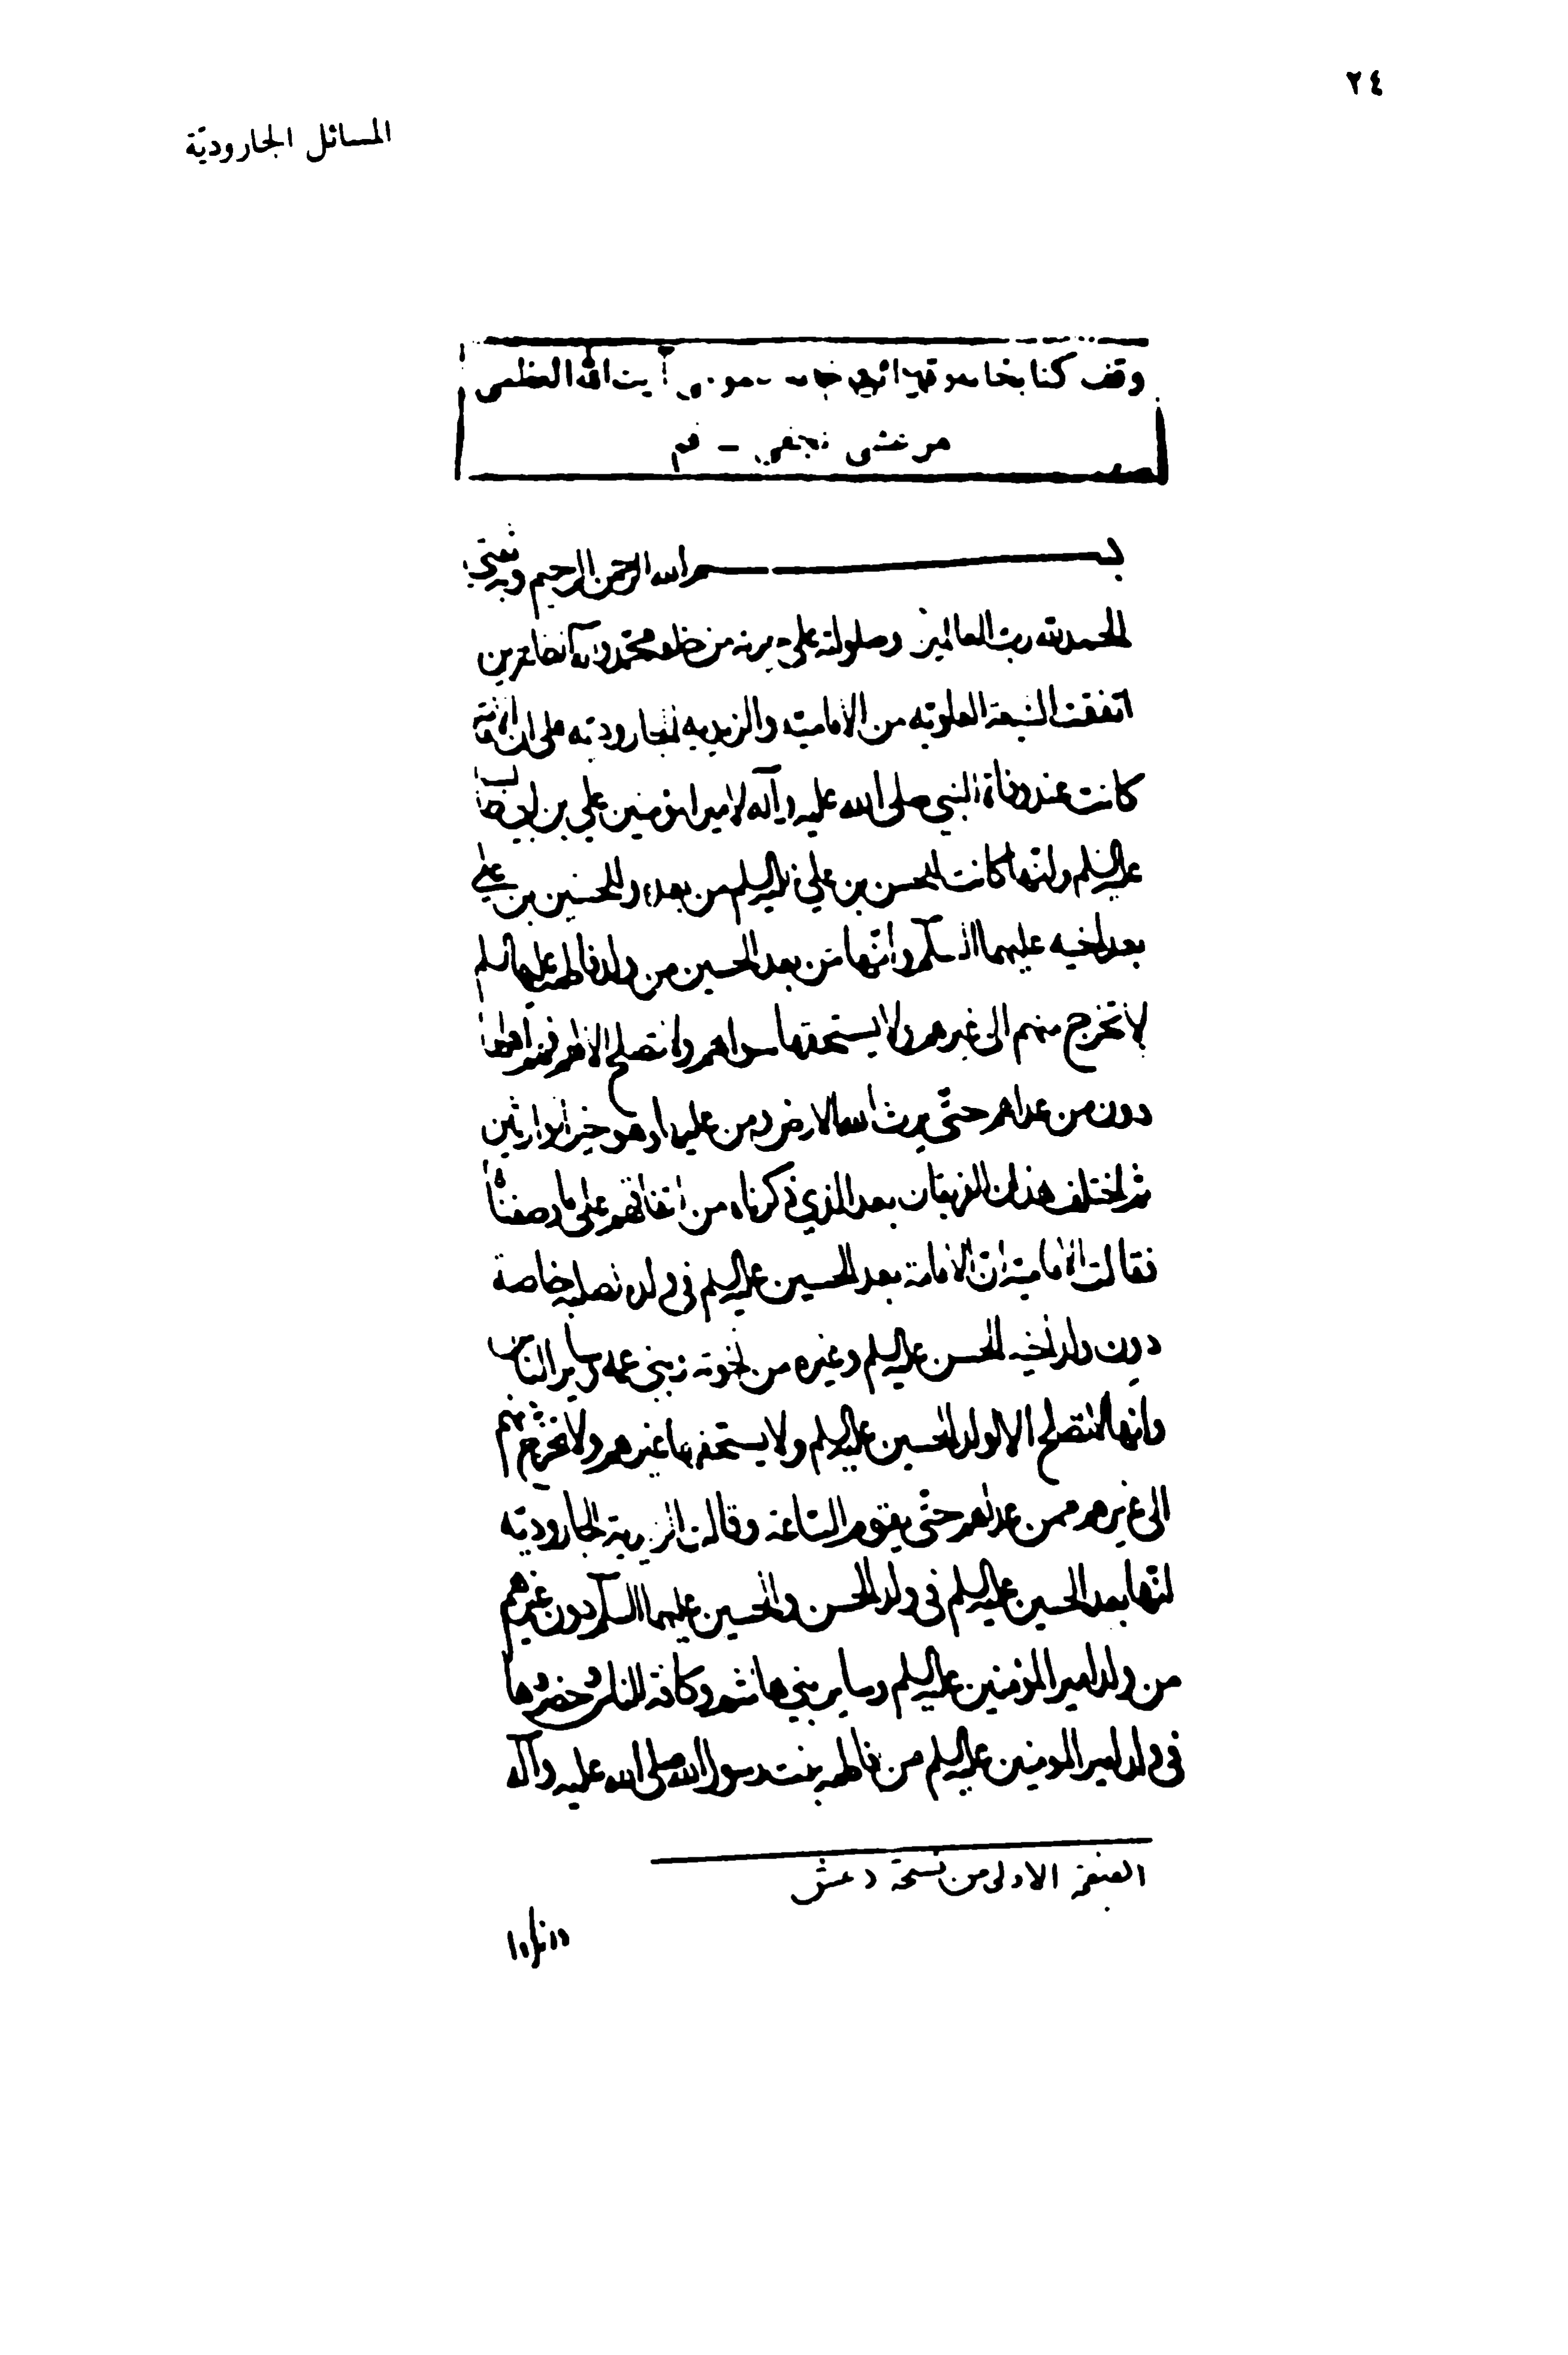 ٢٤
المسائل الجاروديّة
وقف كتابخانه عمومى آيت الله العظمى
مرعشى نجفى - قم
بسم الله الرحمن الرحيم وبه ثقتي
الحمد لله رب العالمين وصلواته على خيرته من خلقه محمد وآله الطاهرين
اتفقت الشيعة العلويّه من الاماميّه والزيديه الجاروديّه على ان الامامة
كانت عند وفاة النبي صلى الله عليه وآله لامير المؤمنين علي بن ابي طالب
عليه السلم وانّها كانت للحسن بن علي عليه السلم من بعده وللحسين بن علي
بعد اخيه عليهما السلم وانّها من بعد الحسين من ولد فاطمه عليها السلم
لا تخرج منهم الى غيرهم ولا يستحقها سواهم ولا تصلح الا لهم فهم اهلها
دون من عداهم حتّى يرث الله الارض ومن عليها وهو خير الوارثين
ثم اختلف هذان الفريقان بعد الذي ذكرناه من اتفاقهم على ما وصفناه
فقالت الاماميّة ان الامامة بعد الحسين عليه السلم في ولده لصلبه خاصة
دون ولد اخيه الحسن عليه السلم وغيره من اخوته وبني عمه وساير الناس
وانّها لا تصلح الا لولد الحسين عليه السلم ولا يستحقها غيرهم ولا تخرج عنهم
الى غيرهم ممن عداهم حتّى يقوم السّاعة وقالت الزيدية الجاروديّه
انّها بعد الحسين عليه السلم في ولد الحسن والحسين عليهما السلم دون غيرهم
من ولد امير المؤمنين عليه السلم وساير بني هاشم وكافة الناس وحصروها
في ولد امير المومنين عليه السلم من فاطمه بنت رسول الله صلى الله عليه وآله
الصفحة الاولى من نسخة دعش